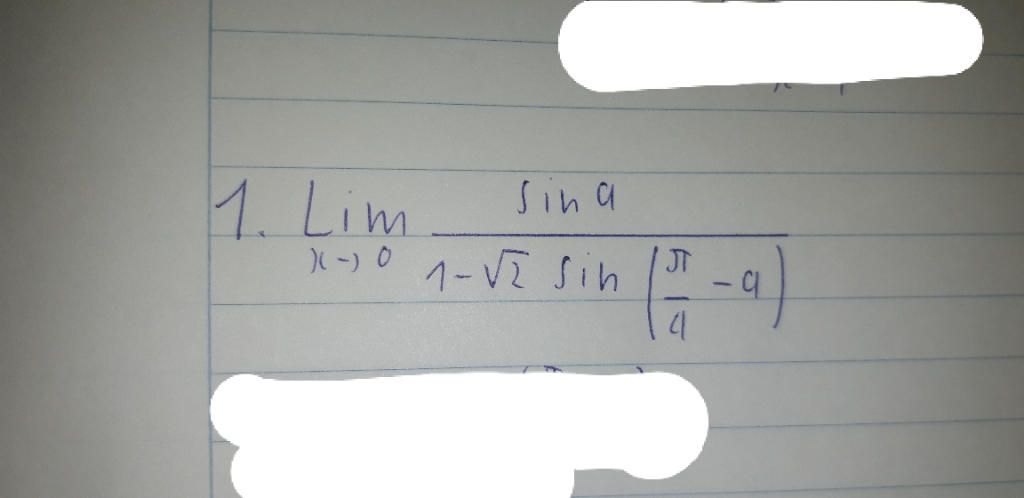 1. Lim x→0 sin a / (1-√2 sin (π/4 - a))